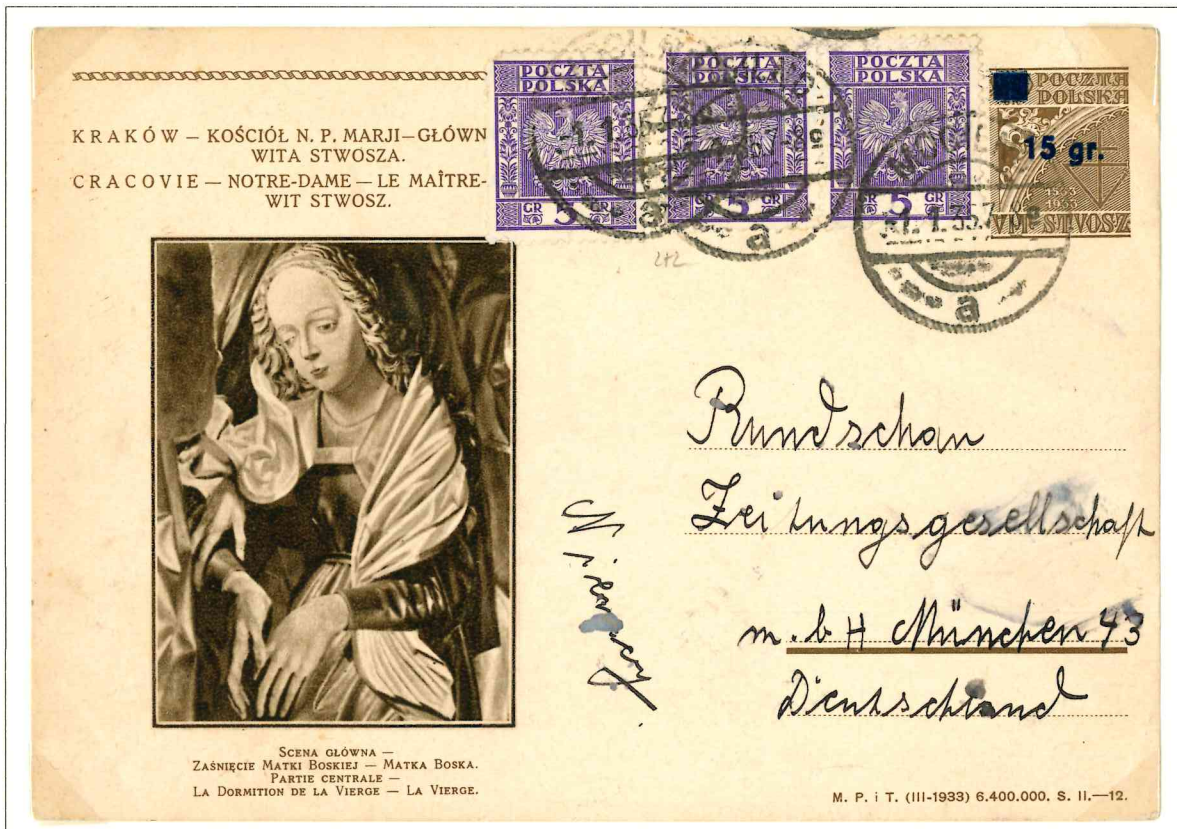 KRAKÓW — KOŚCIÓŁ N. P. MARJI—GŁÓWN
WITA STWOSZA.
CRACOVIE — NOTRE-DAME — LE MAÎTRE-
WIT STWOSZ.
POCZTA
POLSKA
GR 5
POCZTA
POLSKA
GR 5
POCZTA
POLSKA
GR 5
POCZTA
POLSKA
15 gr.
1533
1933
VM STVOSZ
a
a
a
272
Rundschau
Zeitungsgesellschaft
m. b H München 43
Deutschland
SCENA GŁÓWNA —
ZAŚNIĘCIE MATKI BOSKIEJ — MATKA BOSKA.
PARTIE CENTRALE —
LA DORMITION DE LA VIERGE — LA VIERGE.
M. P. i T. (III-1933) 6.400.000. S. II.—12.